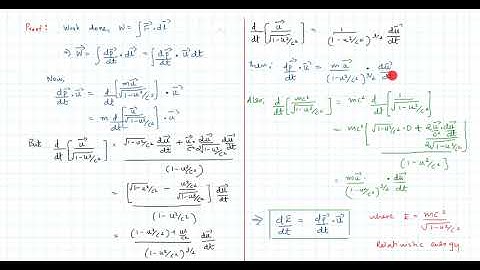 Proof: Work done, W = ∫ F⃗ · dl⃗
⇒ W = ∫ dp⃗/dt · dl⃗ = ∫ dp⃗/dt · u⃗ dt
Now,
dp⃗/dt · u⃗ = d/dt [mu⃗/√(1-u²/c²)] · u⃗
= m d/dt [u⃗/√(1-u²/c²)] · u⃗
But d/dt [u⃗/√(1-u²/c²)] = (√(1-u²/c²) du⃗/dt + u⃗/c² 2u⃗/2√(1-u²/c²) du⃗/dt)/(1-u²/c²)
= [√(1-u²/c²) - u²/c²/√(1-u²/c²)] du⃗/dt/(1-u²/c²)
= ((1-u²/c²) + u²/c²)/(1-u²/c²)^3/2 du⃗/dt
d/dt [u⃗/√(1-u²/c²)] = 1/(1-u²/c²)^3/2 du⃗/dt
Then: dp⃗/dt · u⃗ = mu⃗/(1-u²/c²)^3/2 · du⃗/dt
Also, d/dt [mc²/√(1-u²/c²)] = mc² d/dt [1/√(1-u²/c²)]
= mc² [√(1-u²/c²) · 0 + 2u⃗/c² · du⃗/dt/2√(1-u²/c²)]/(1-u²/c²)
= mu⃗/(1-u²/c²)^3/2 · du⃗/dt
⇒ dE/dt = dp⃗/dt · u⃗ where E = mc²/√(1-u²/c²)
Relativistic energy